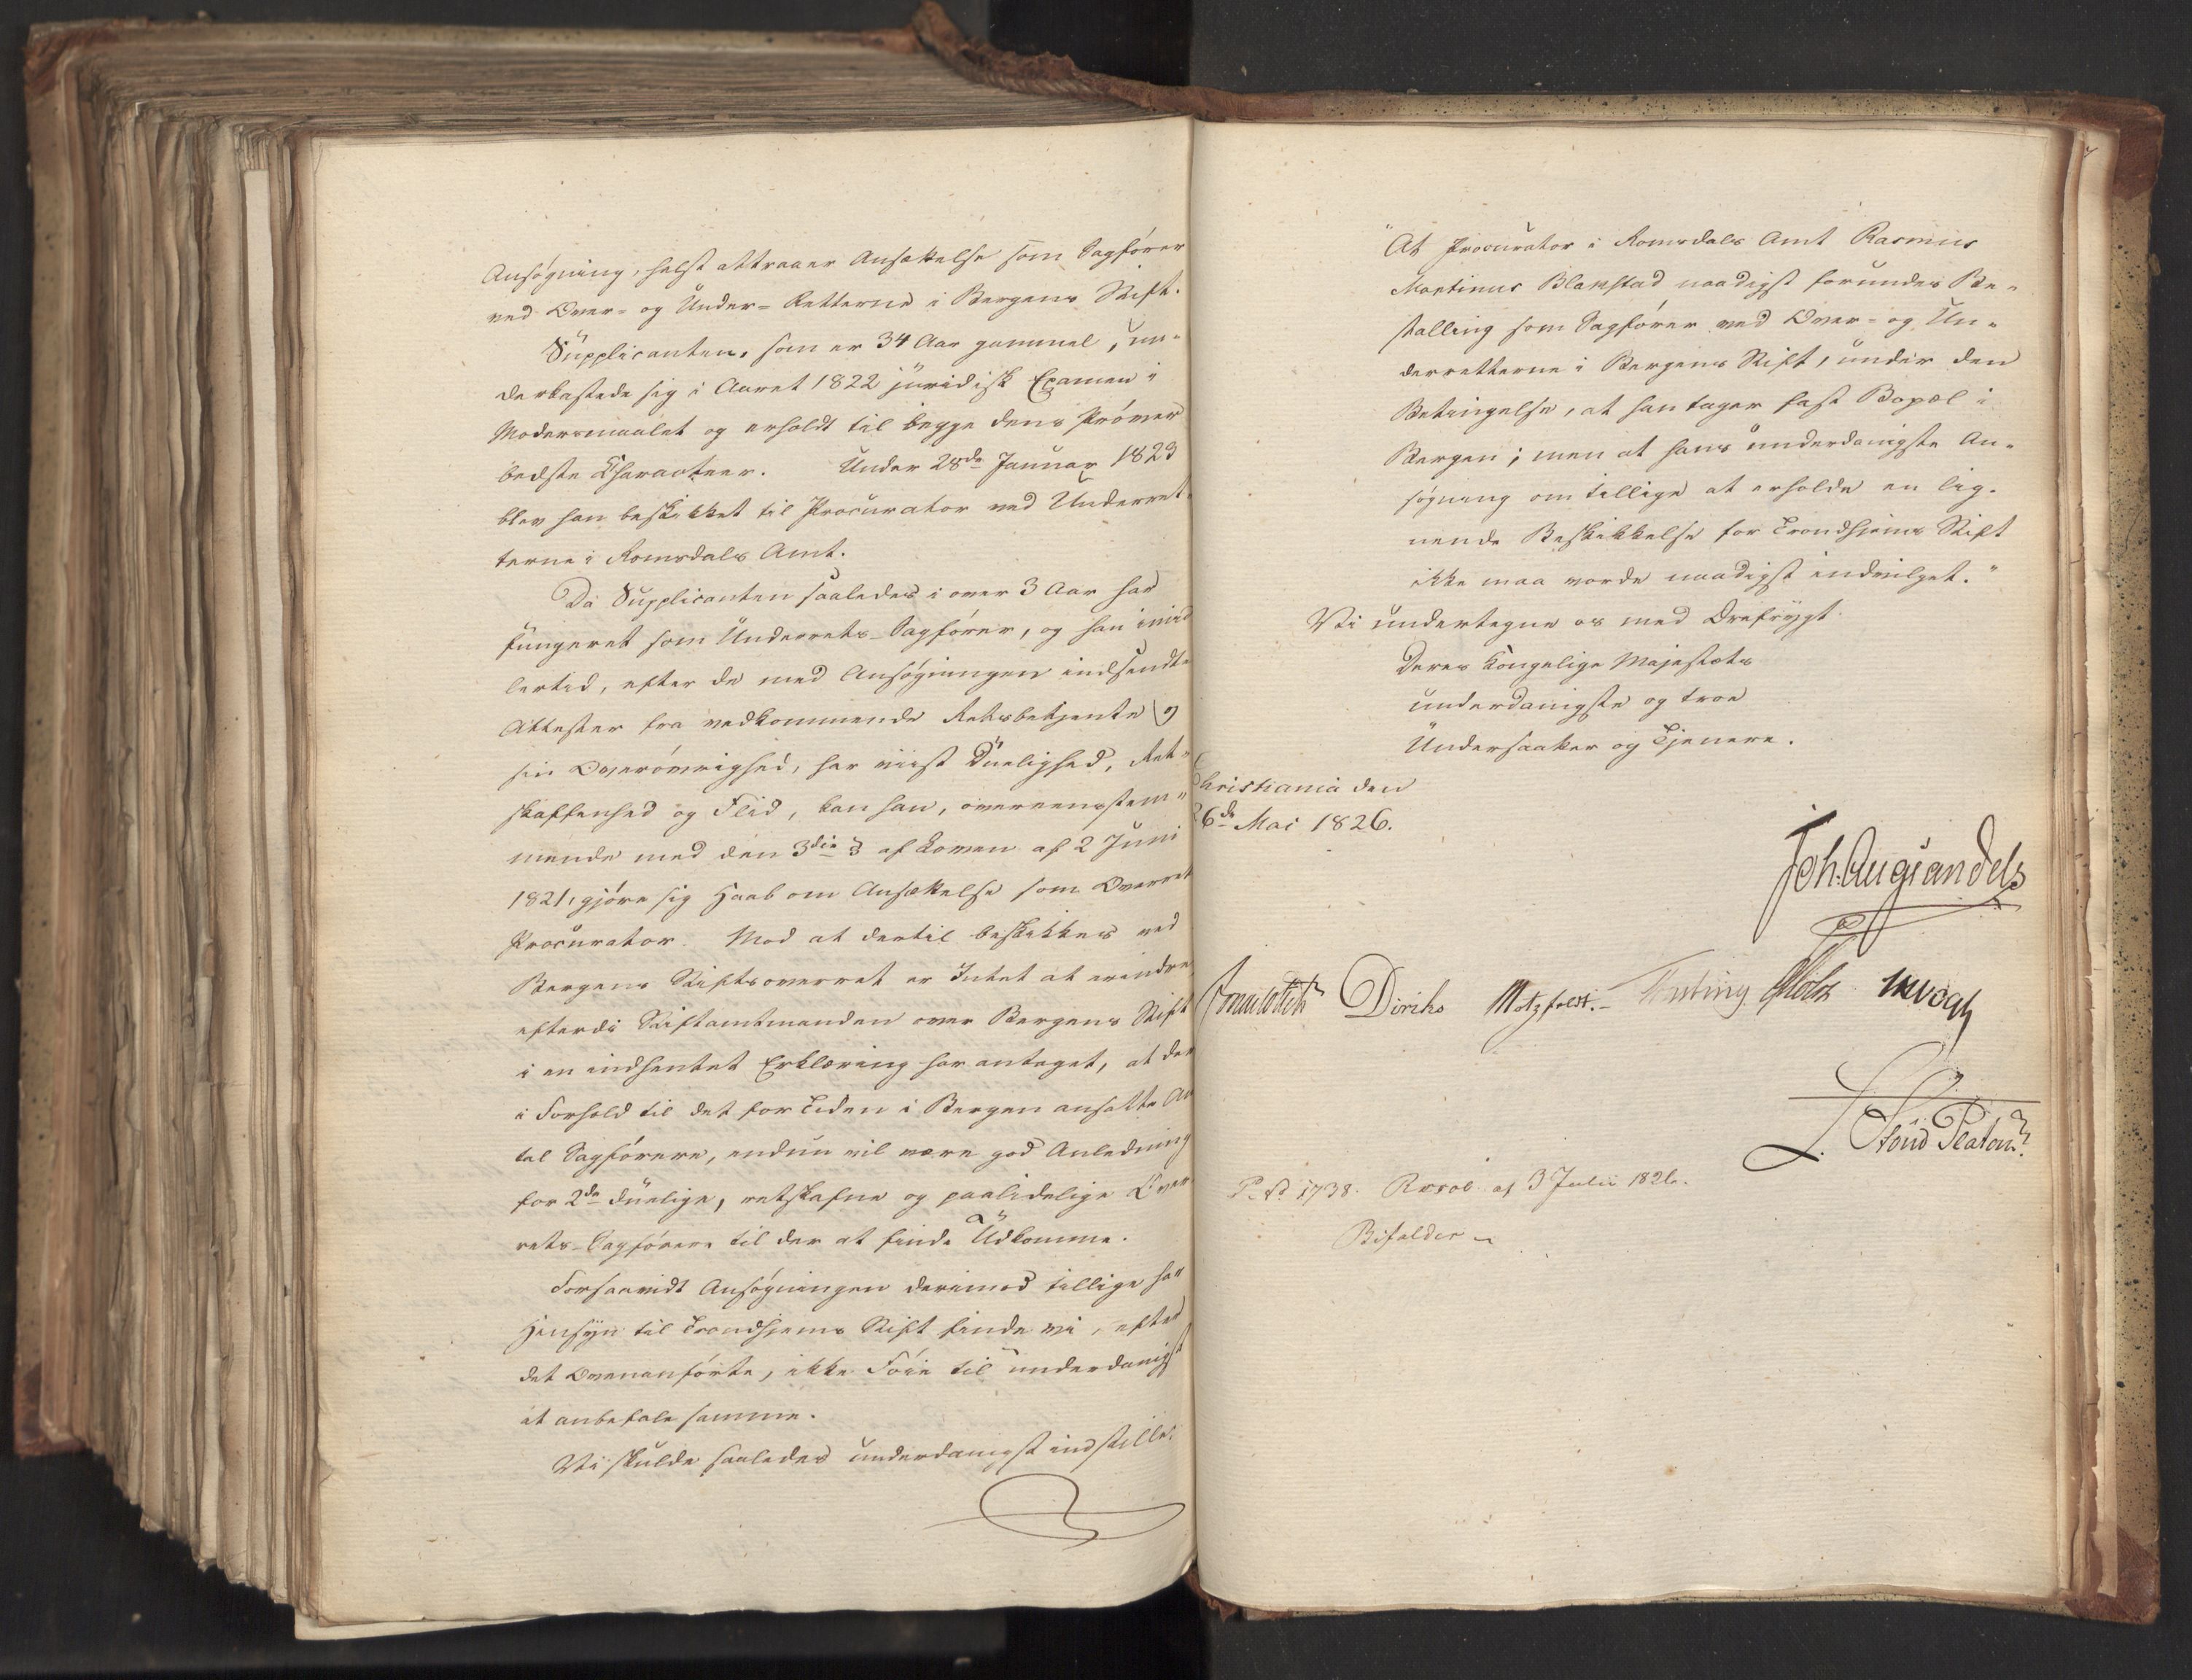 Ansøgning, helst attraaer Ansættelse som Sagfører
ved Over- og Under-Retterne i Bergens Stift.
Supplicanten, som er 34 Aar gammel, un-
derkastede sig i Aaret 1822 juridisk Examen i
Modersmaalet og erholdt til begge dens Prøver
bedste Characteer. Under 28de Januar 1823
blev han beskikket til Procurator ved Underret-
terne i Romsdals Amt.
Da Supplicanten saaledes i over 3 Aar har
fungeret som Underrets-Sagfører, og han imid
lertid, efter de med Ansøgningen indsendte
Attester fra vedkommende Retsbetjente og
sin Overøvrighed, har viist Duelighed, Ret-
skaffenhed og Flid, kan han, overeensstem-
mende med den 3die § af Loven af 2 Juni
1821, gjøre sig Haab om Ansættelse som Overret
Procurator. Mod at dertil beskikkes ved
Bergens Stiftsoverret er Intet at erindre
efterdi Stiftamtmanden over Bergens Stift
i en indhentet Erklæring har antaget, at der
i Forhold til det for Tiden i Bergen ansatte An
tal Sagførere, endnu vil være god Anledning
for 2de duelige, retskafne og paalidelige Over
rets-Sagførere til der at finde Udkomme.
Forsaavidt Ansøgningen derimod tillige har
Hensyn til Trondhjems Stift finde vi, efter
det Ovenanførte, ikke Føie til underdanigst
at anbefale samme.
Vi skulde saaledes underdanigst indstille:
"At Procurator i Romsdals Amt Rasmus
Martinus Blakstad naadigst forundes Be-
stalling som Sagfører ved Over- og Un-
derretterne i Bergens Stift, under den
Betingelse, at han tager fast Bopæl i
Bergen; men at hans underdanigste An-
søgning om tillige at erholde en lig-
nende Beskikkelse for Trondhjems Stift
ikke maa vorde naadigst indvilget."
Vi undertegne os med Ærefrygt
Deres Kongelige Majestæts
underdanigste og troe
Undersaatter og Tjenere.
Christiania den
26de Mai 1826.
Joh. Aug: Sandels
Diriks Motzfeldt. Fasting JHolst
L. Stoud Platou
P. N. 1738. Resol. af 3 Julii 1826.
Bifaldes